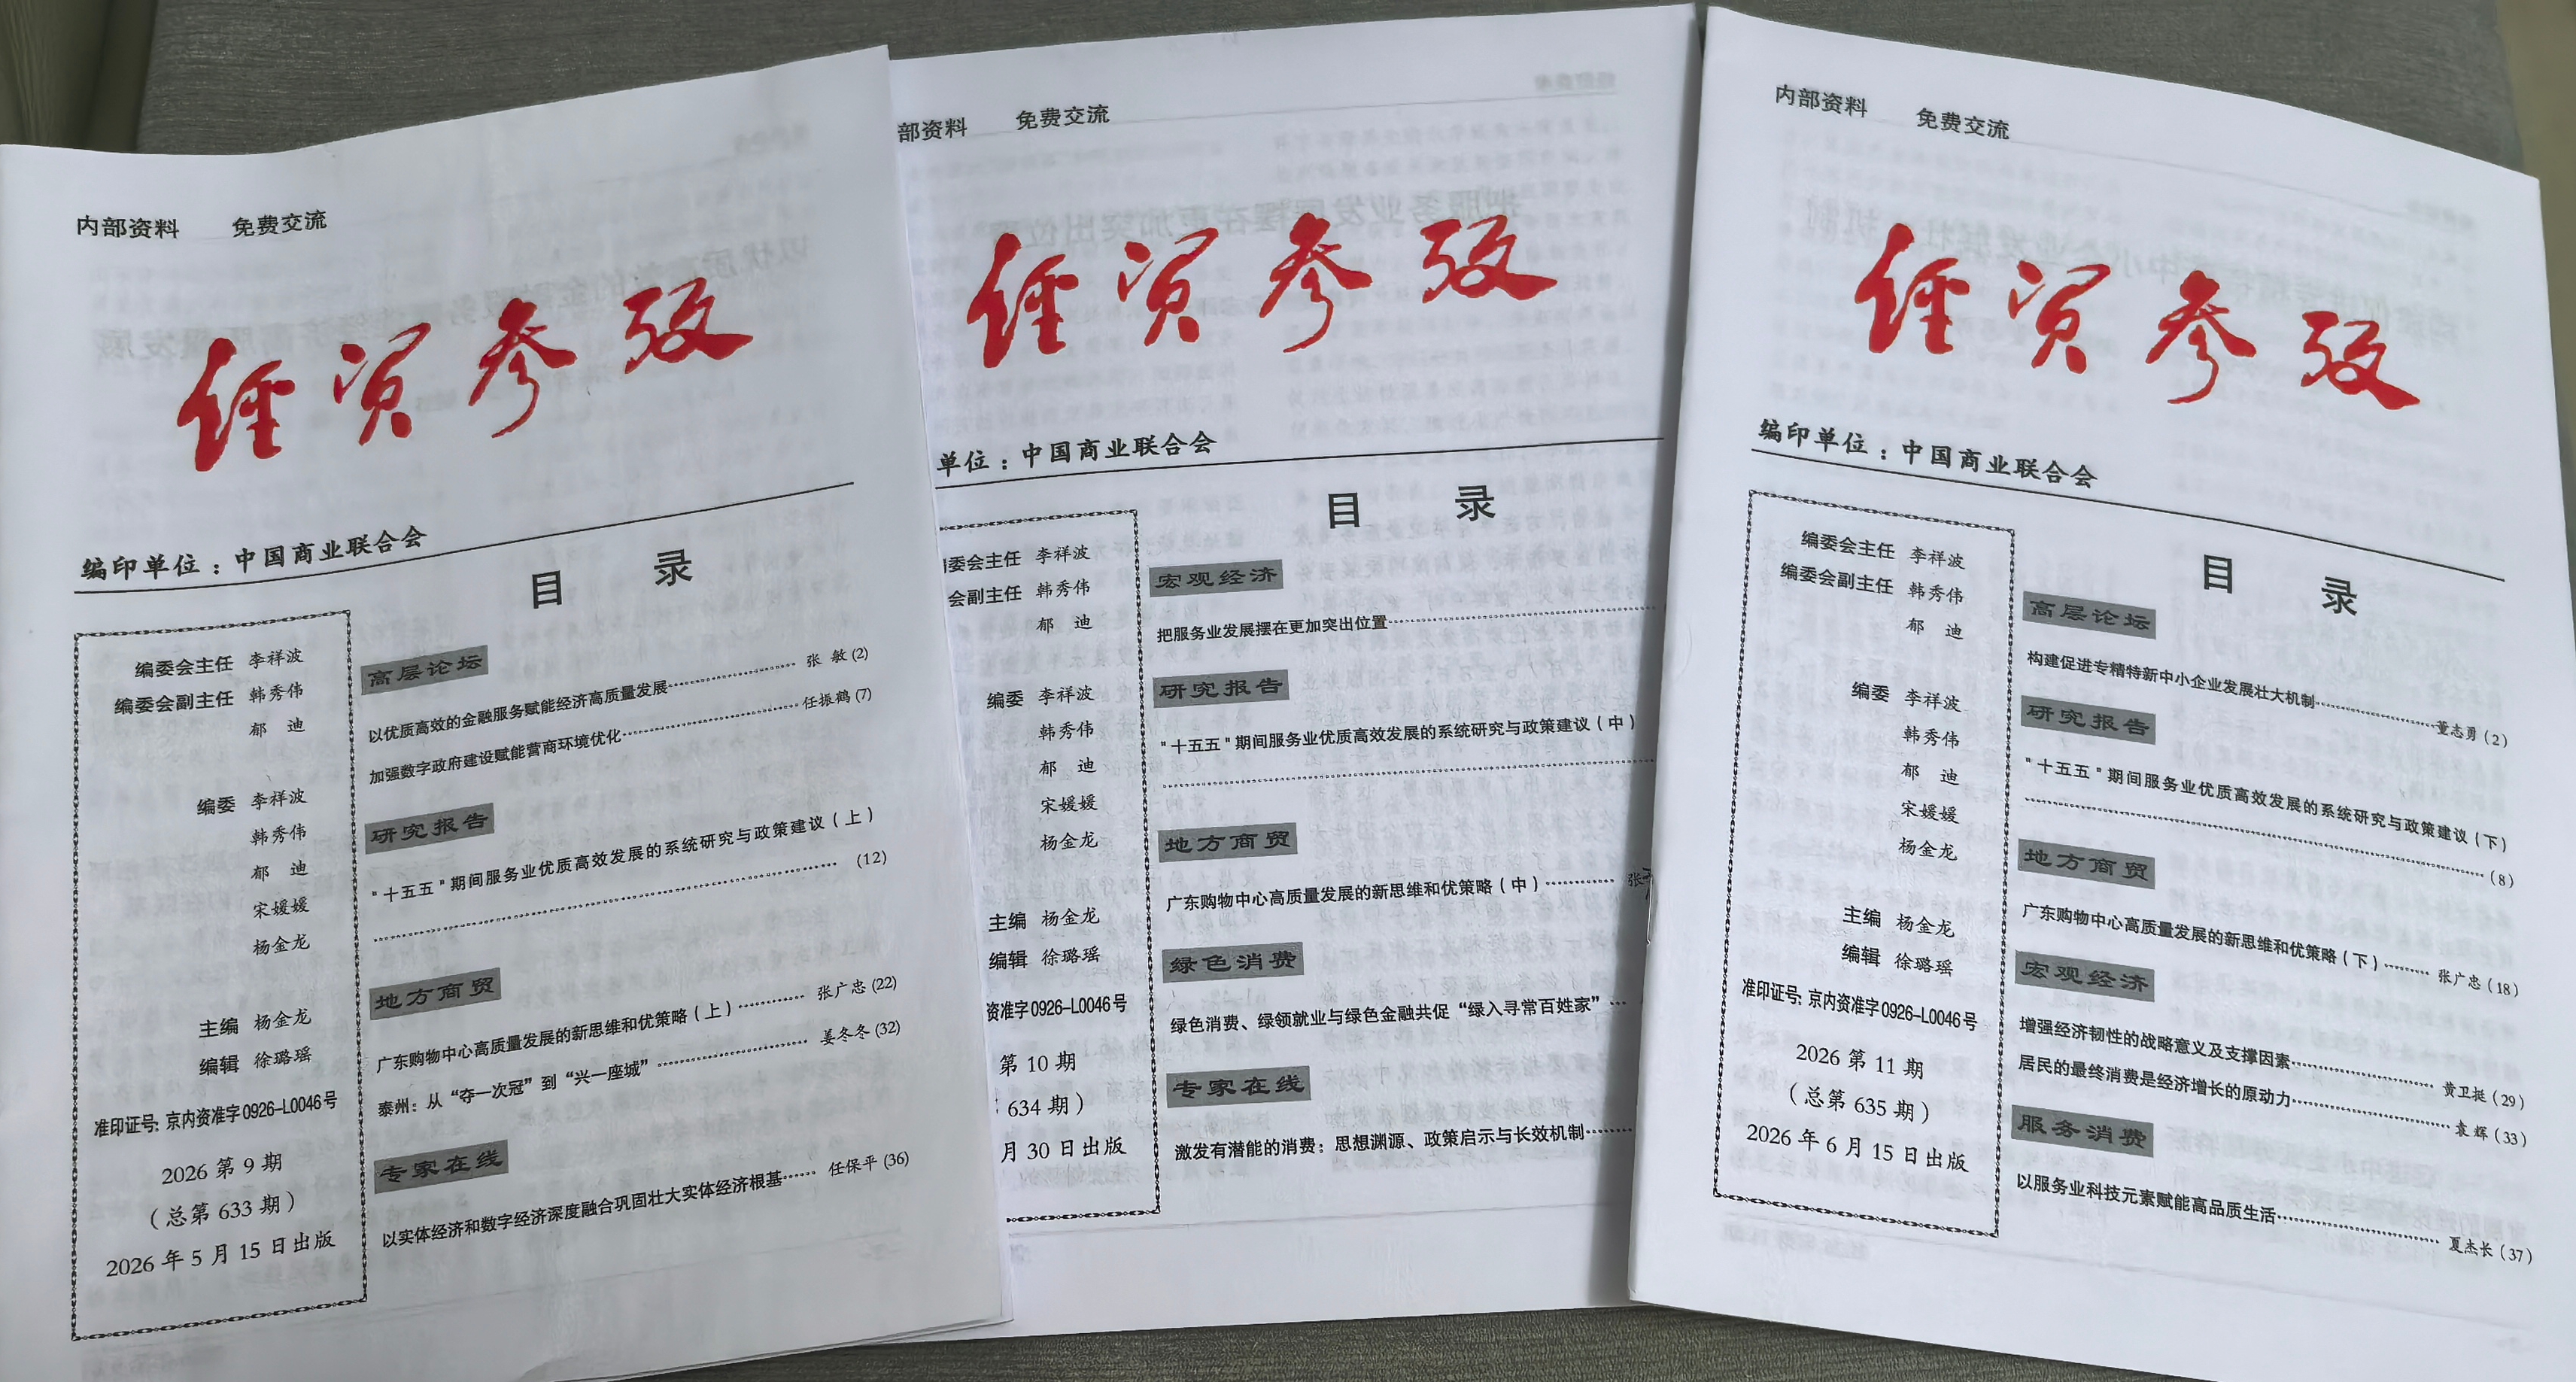 内部资料 免费交流
经贸参考
编印单位：中国商业联合会
目 录
编委会主任 李祥波
编委会副主任 韩秀伟
郁 迪
编委 李祥波
韩秀伟
郁 迪
宋媛媛
杨金龙
主编 杨金龙
编辑 徐璐瑶
准印证号: 京内资准字0926-L0046号
2026 第 9 期
（总第 633 期）
2026 年 5 月 15 日出版
高层论坛
以优质高效的金融服务赋能经济高质量发展 张 敏 (2)
加强数字政府建设赋能营商环境优化 任振鹤 (7)
研究报告
"十五五"期间服务业优质高效发展的系统研究与政策建议（上）
(12)
地方商贸
广东购物中心高质量发展的新思维和优策略（上） 张广忠 (22)
泰州：从“夺一次冠”到“兴一座城” 姜冬冬 (32)
专家在线
以实体经济和数字经济深度融合巩固壮大实体经济根基 任保平 (36)
部资料 免费交流
经贸参考
单位：中国商业联合会
目 录
委会主任 李祥波
会副主任 韩秀伟
郁 迪
编委 李祥波
韩秀伟
郁 迪
宋媛媛
杨金龙
主编 杨金龙
编辑 徐璐瑶
资准字0926-L0046号
第 10 期
634 期）
月 30 日出版
宏观经济
把服务业发展摆在更加突出位置
研究报告
"十五五"期间服务业优质高效发展的系统研究与政策建议（中）
地方商贸
广东购物中心高质量发展的新思维和优策略（中） 张
绿色消费
绿色消费、绿领就业与绿色金融共促“绿入寻常百姓家”
专家在线
激发有潜能的消费：思想渊源、政策启示与长效机制
内部资料 免费交流
经贸参考
编印单位：中国商业联合会
目 录
编委会主任 李祥波
编委会副主任 韩秀伟
郁 迪
编委 李祥波
韩秀伟
郁 迪
宋媛媛
杨金龙
主编 杨金龙
编辑 徐璐瑶
准印证号: 京内资准字0926-L0046号
2026 第 11 期
（总第 635 期）
2026 年 6 月 15 日出版
高层论坛
构建促进专精特新中小企业发展壮大机制 董志勇 (2)
研究报告
"十五五"期间服务业优质高效发展的系统研究与政策建议（下）
(8)
地方商贸
广东购物中心高质量发展的新思维和优策略（下） 张广忠 (18)
宏观经济
增强经济韧性的战略意义及支撑因素 黄卫挺 (29)
居民的最终消费是经济增长的原动力 袁 辉 (33)
服务消费
以服务业科技元素赋能高品质生活 夏杰长 (37)